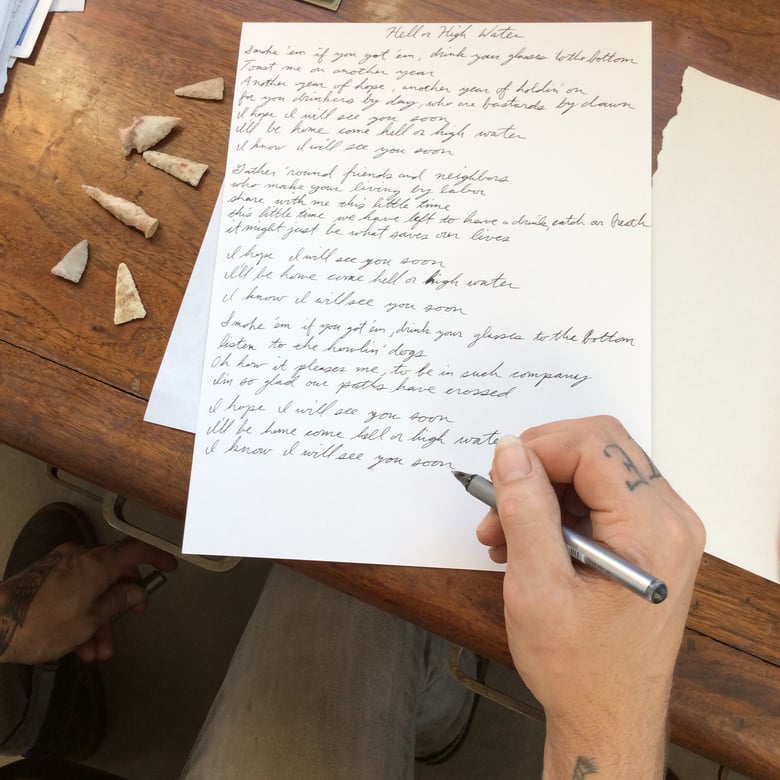 Hell or High Water
Smoke 'em if you got 'em, drink your glasses to the bottom
Toast me on another year
Another year of hope, another year of holdin' on
for you drinkers by day, who are bastards by dawn
I hope I will see you soon
I'll be home come hell or high water
I know I will see you soon
Gather 'round friends and neighbors
who make your living by labor
share with me this little time
this little time we have left to have a drink, catch our breath
it might just be what saves our lives
I hope I will see you soon
I'll be home come hell or high water
I know I will see you soon
Smoke 'em if you got 'em, drink your glasses to the bottom
listen to the howlin' dogs
Oh how it pleases me, to be in such company
I'm so glad our paths have crossed
I hope I will see you soon
I'll be home come hell or high wate
I know I will see you soon